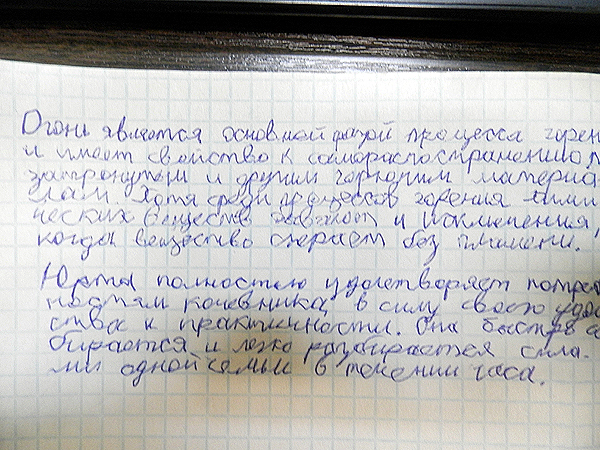 Огонь является основной фазой процесса горен
и имеет свойство к самораспостранению, п
затронутым и другим горючим материа-
лам. Хотя среди процессов горения хими
ческих веществ бывают и исключения,
когда вещество сгорает без пламени.
Юрта полностью удолетворяет потреб
ностям кочевника, в силу своего удоб
ства и практичности. Она быстро со
бирается и легко разбирается сила-
ми одной семьи в течении часа.